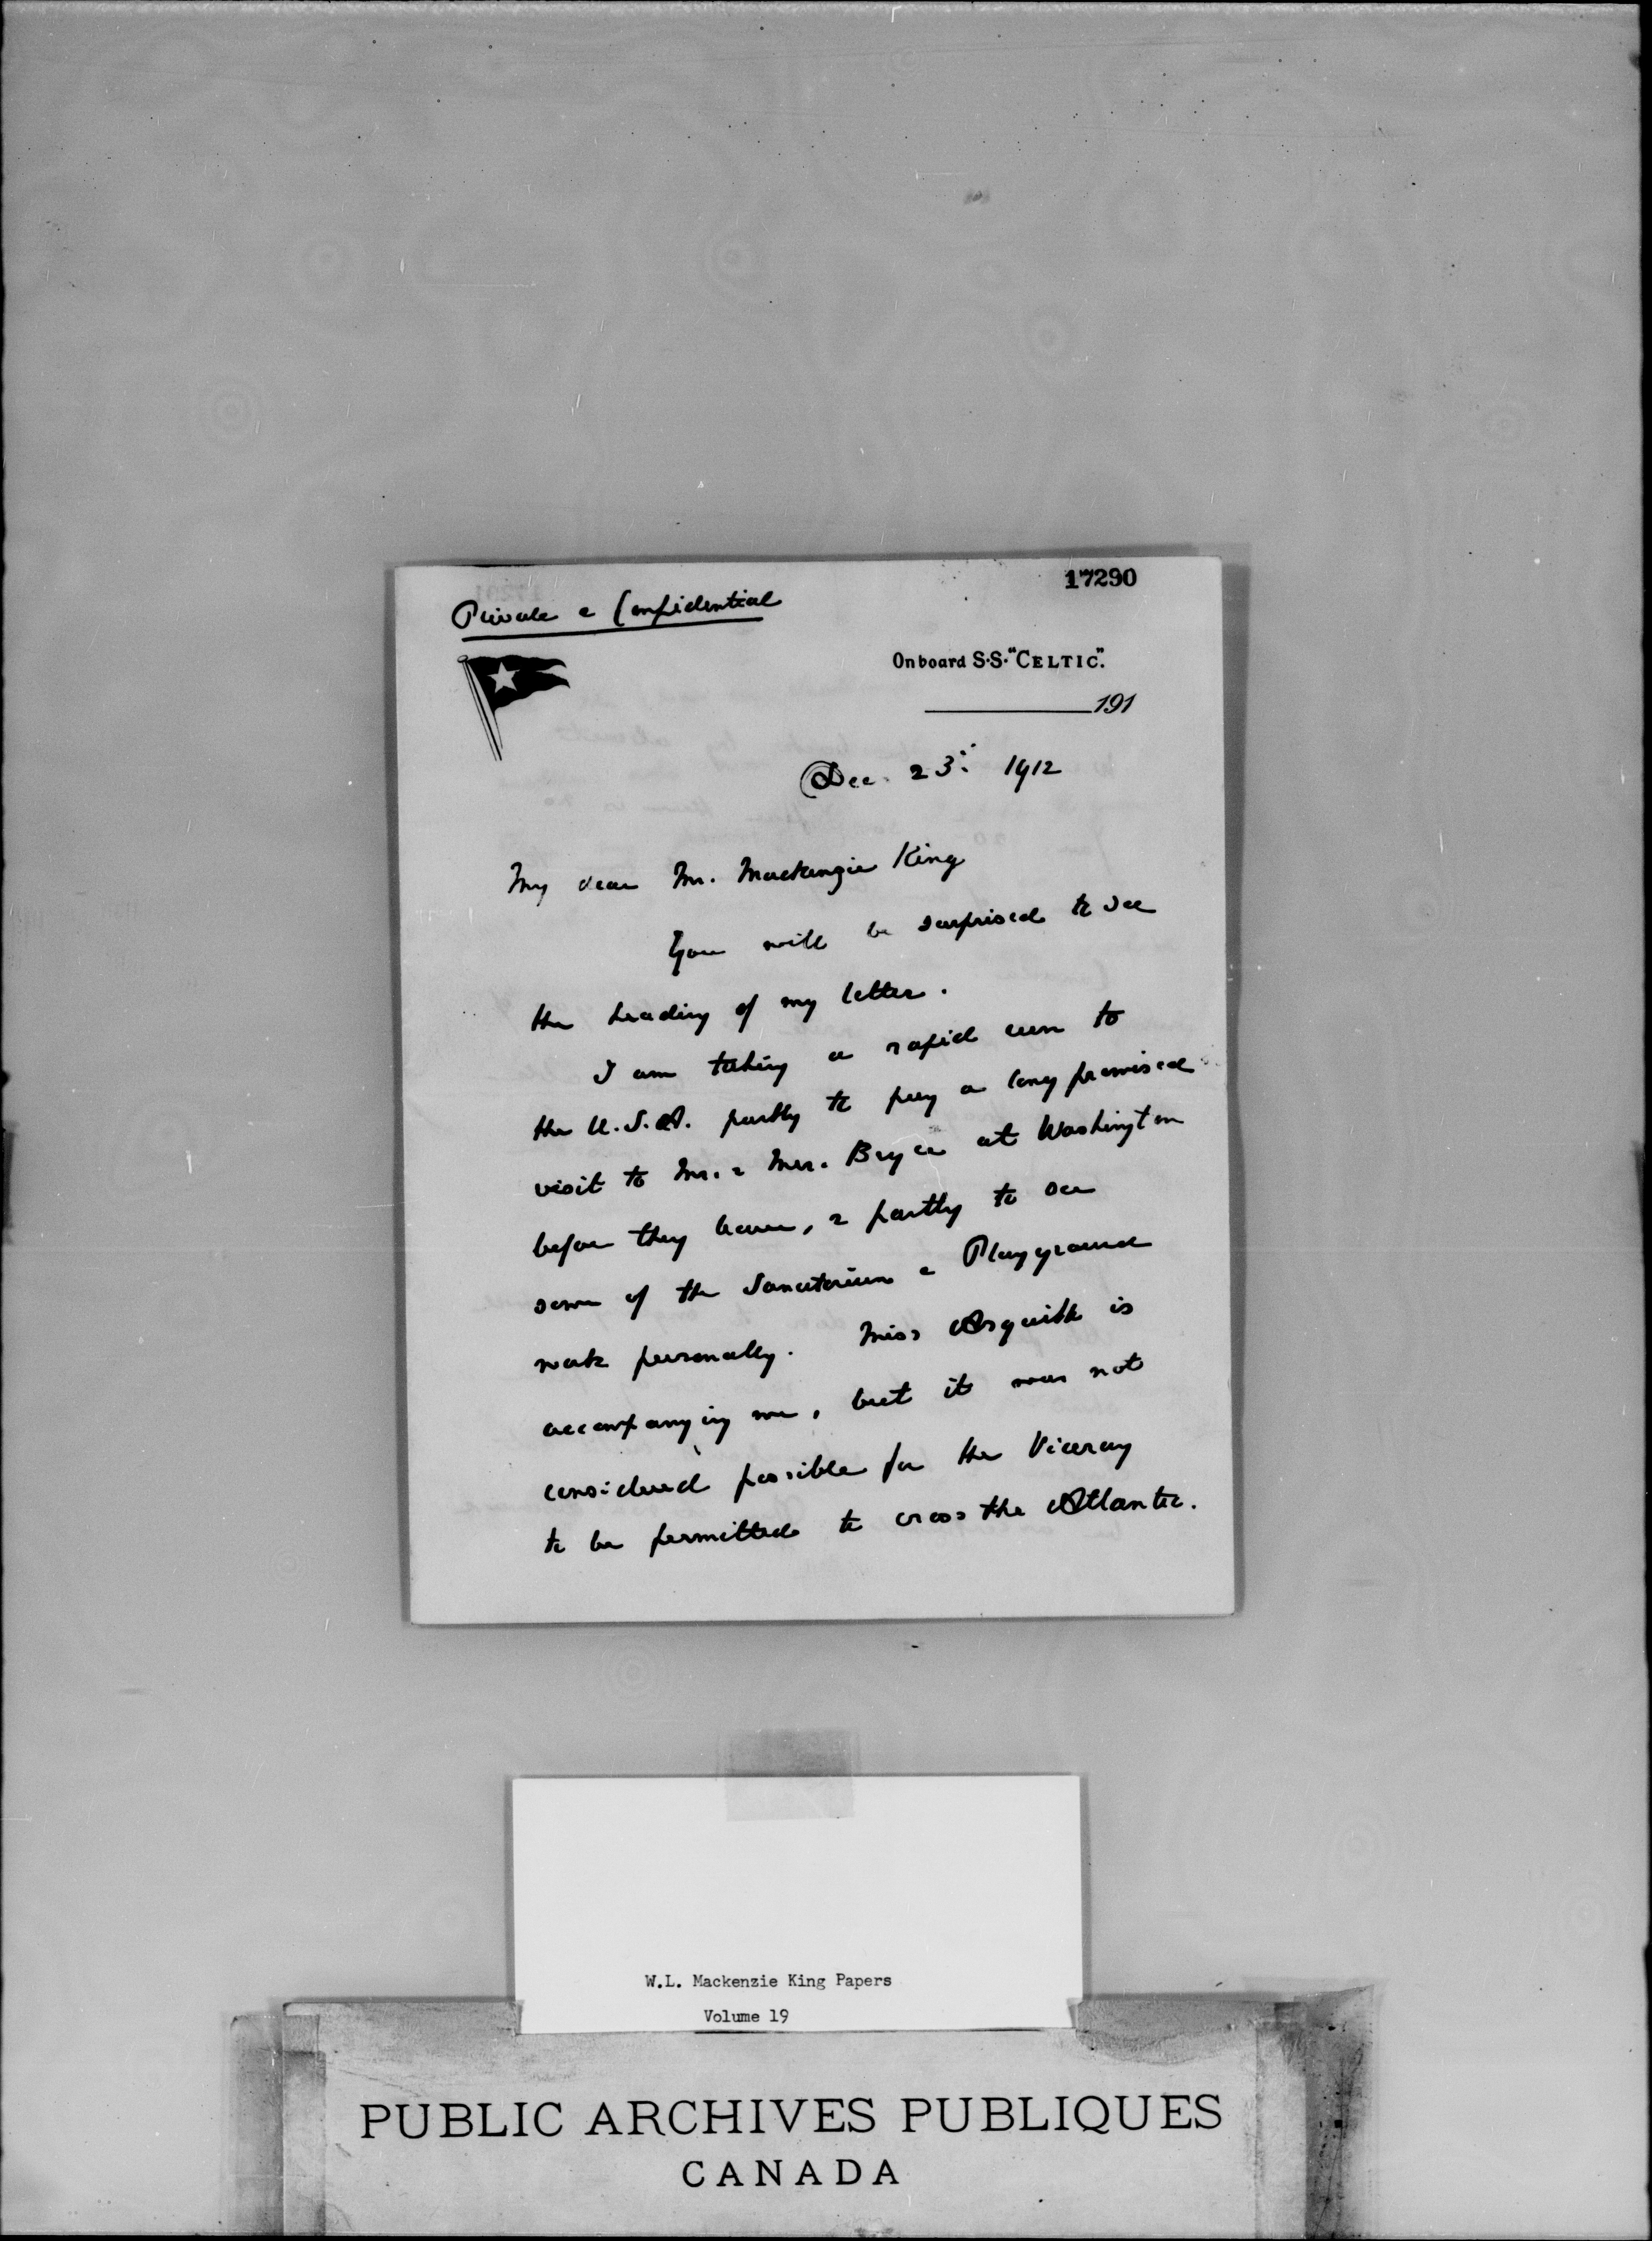 17290
Private & Confidential
On board S.S. "CELTIC".
191
Dec. 23: 1912
My dear Mr. Mackenzie King
You will be surprised to see
the heading of my letter.
I am taking a rapid run to
the U.S.A. partly to pay a long promised
visit to Mr. & Mrs. Bryce at Washington
before they leave, & partly to see
some of the Sanatorium & Playground
work personally. Miss Asquith is
accompanying me, but it was not
considered possible for the Viceroy
to be permitted to cross the Atlantic.
W.L. Mackenzie King Papers
Volume 19
PUBLIC ARCHIVES PUBLIQUES
CANADA